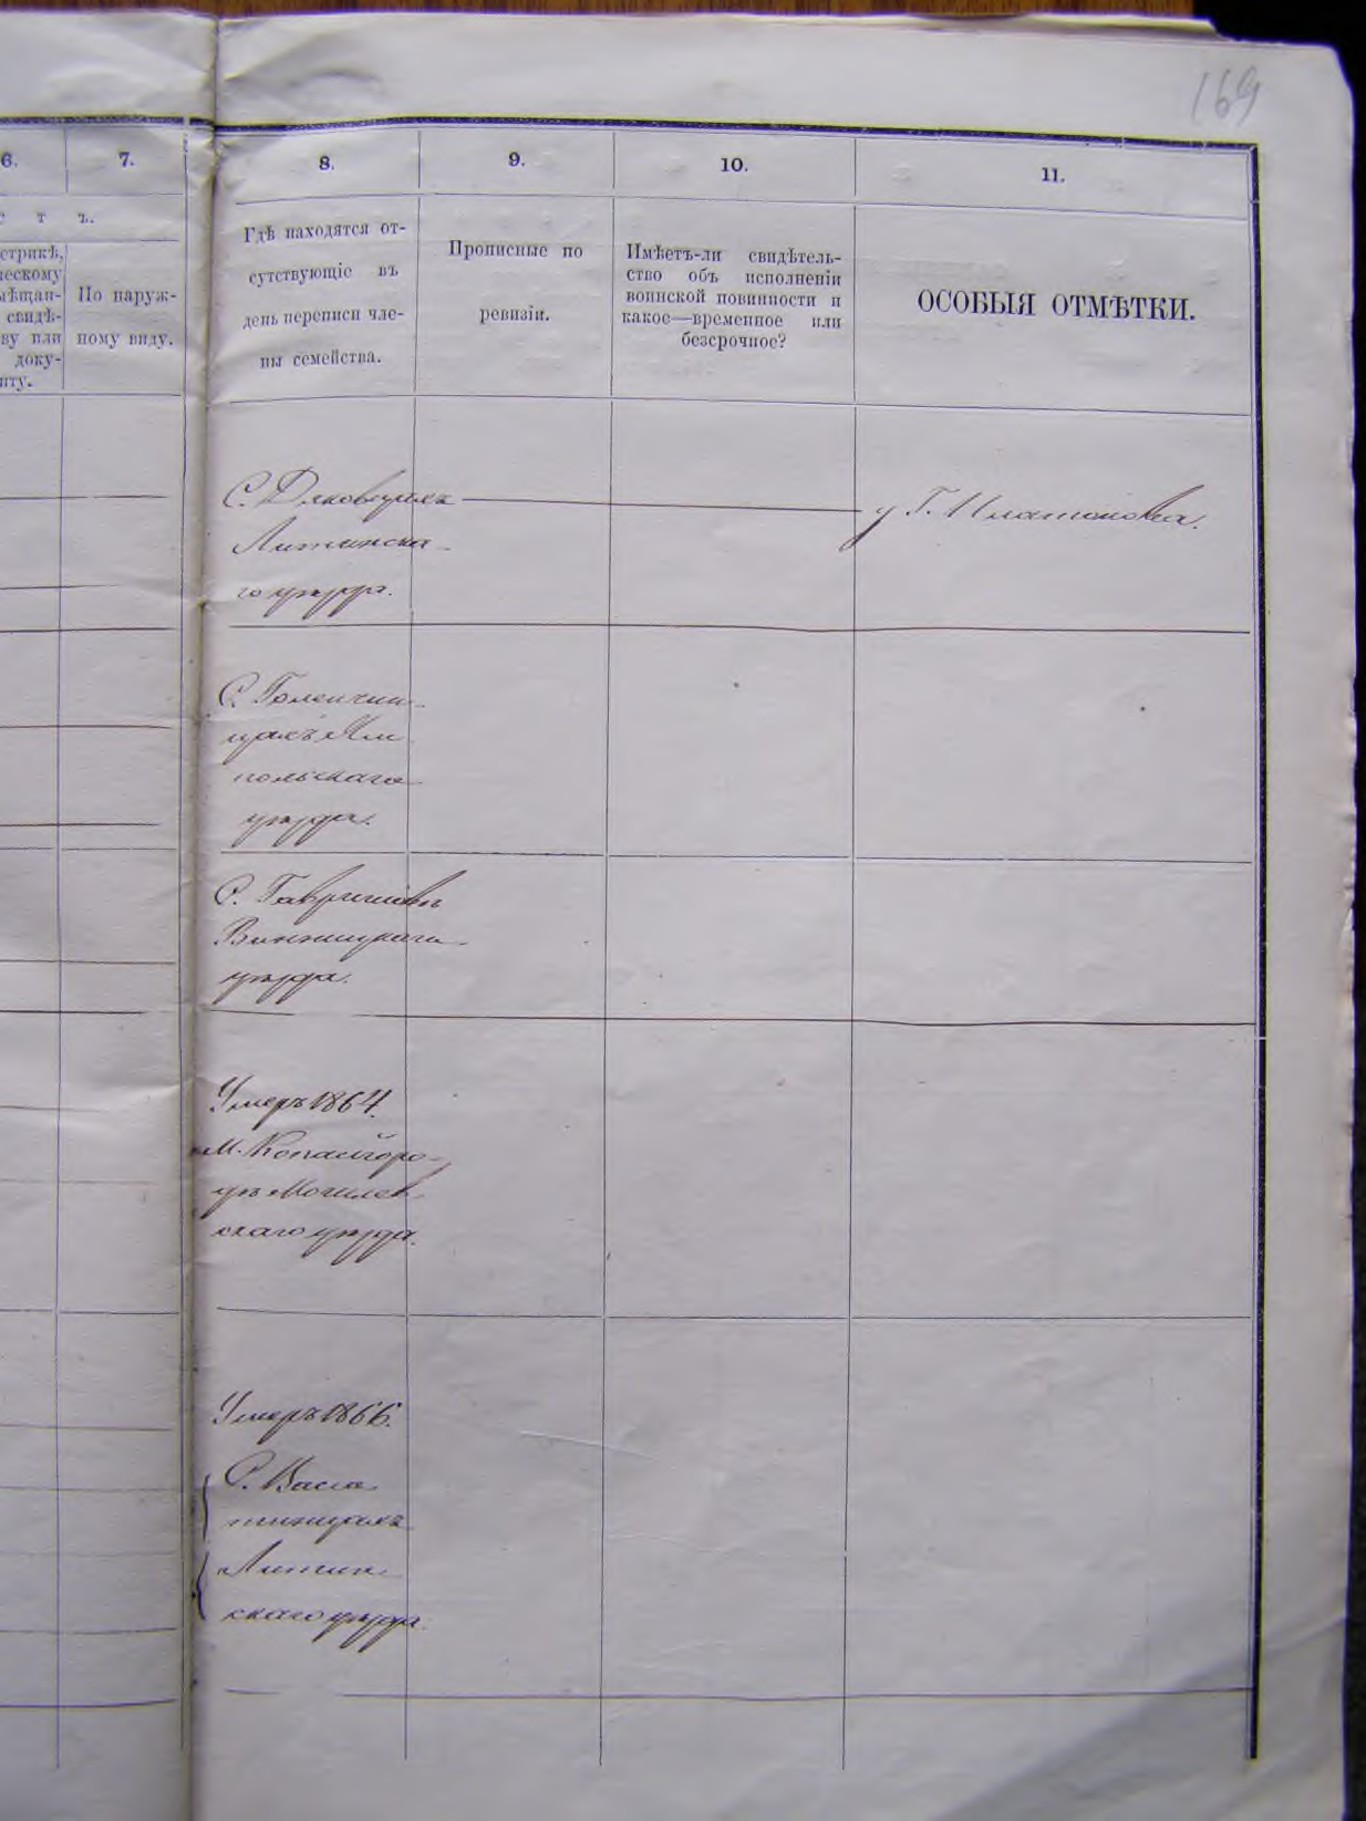 169
6.
7.
8.
9.
10.
11.
с т ъ.
стрикѣ,
ческому
мѣщан-
свидѣ-
ву или
доку-
нту.
По наруж-
ному виду.
Гдѣ находятся от-
сутствующіе въ
день переписи чле-
ны семейства.
Прописные по
ревизіи.
Имѣетъ-ли свидѣтель-
ство объ исполненіи
воинской повинности и
какое—временное или
безсрочное?
ОСОБЫЯ ОТМѢТКИ.
С. Дяковцахъ
у Г. Платонова.
Литинска-
го уѣзда.
С. Голенчин-
цахъ Ям
польскаго
уѣзда.
С.
Винницкаго
уѣзда.
Умеръ 1864.
м. Копайгоро-
дѣ Могилев
скаго уѣзда.
Умеръ 1866.
С. Васю
тинцахъ
Литин
скаго уѣзда.